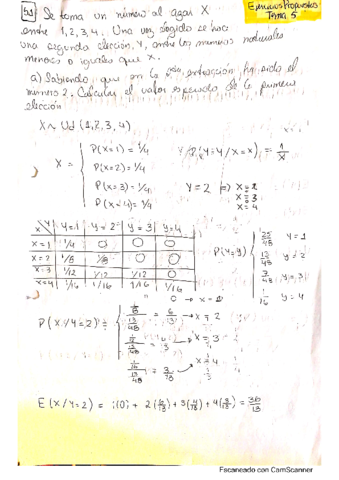 5.1 Se toma un número al azar X
Ejercicios Propuestos
Tema 5
entre 1,2,3,4. Una vez elegido se hace
una segunda elección, Y, entre los números naturales
menores o iguales que X.
a) Sabiendo que en la 2ª extracción ha sido el
número 2. Calcular el valor esperado de la primera
elección
X ~ Ud {1,2,3,4}
X = P(X=1) = 1/4
P(X=2) = 1/4
P(X=3) = 1/4
P(X=4) = 1/4
P(Y=y/X=x) = 1/x
Y=2 => X=2
X=3
X=4
X Y Y=1 Y=2 Y=3 Y=4
X=1 1/4 0 0 0
X=2 1/8 1/8 0 0
X=3 1/12 1/12 1/12 0
X=4 1/16 1/16 1/16 1/16
P(Y=y) 25/48 Y=1
13/48 Y=2
7/48 Y=3
1/16 Y=4
P(X/Y=2) =
0 → X=1
1/8 / 13/48 = 6/13 → X=2
1/12 / 13/48 = 4/13 → X=3
1/16 / 13/48 = 3/13 → X=4
E(X/Y=2) = 1(0) + 2(6/13) + 3(4/13) + 4(3/13) = 36/13
Escaneado con CamScanner